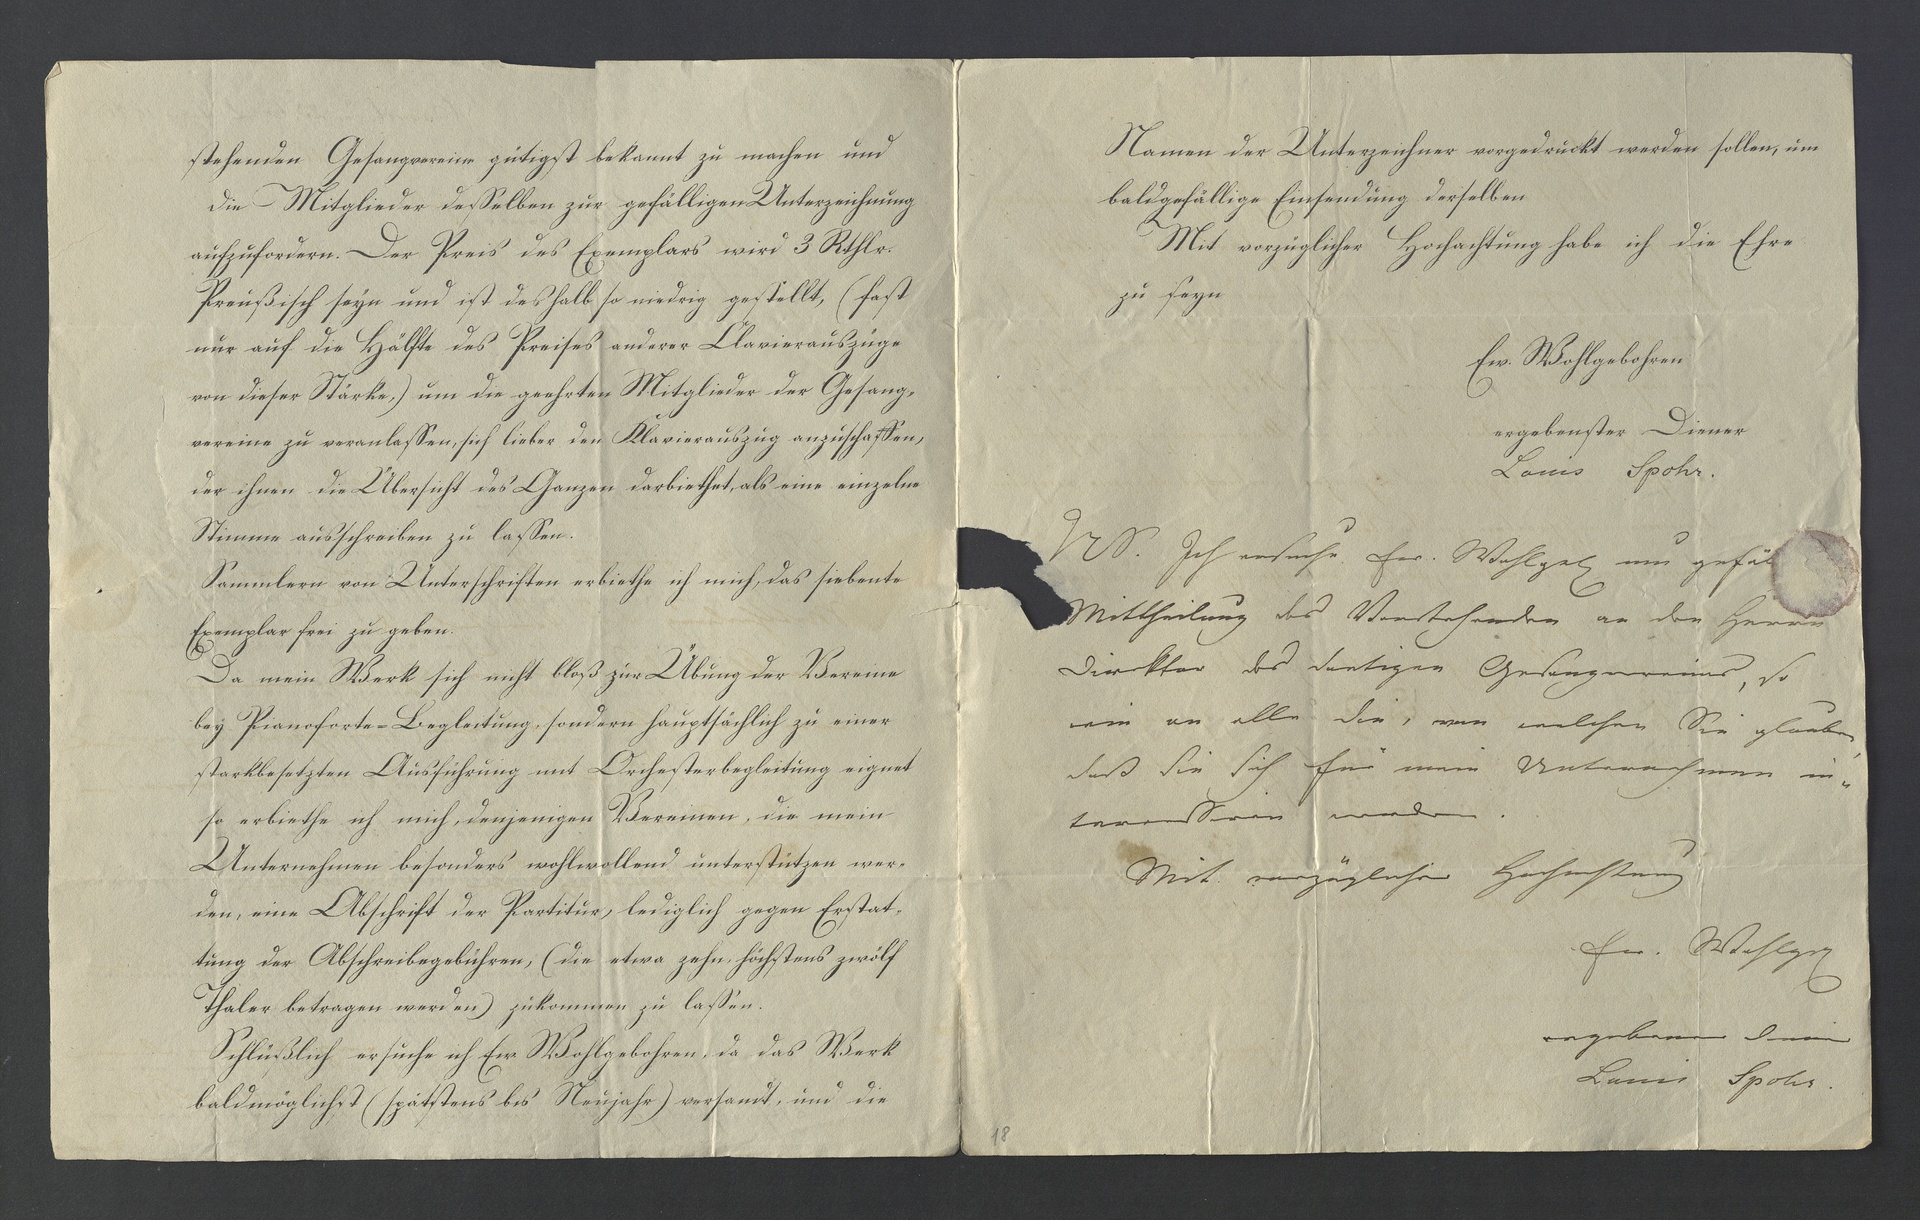 stehenden Gesangvereine gütigst bekannt zu machen und
die Mitglieder desselben zur gefälligen Unterzeichnung
aufzufordern. Der Preis des Exemplars wird 3 Rthlr.
Preußisch seyn und ist deshalb so niedrig gestellt, (fast
nur auf die Hälfte des Preises anderer Clavierauszüge
von dieser Stärke,) um die geehrten Mitglieder der Gesang-
vereine zu veranlassen, sich lieber den Klavierauszug anzuschaffen,
der ihnen die Übersicht des Ganzen darbiethet, als eine einzelne
Stimme ausschreiben zu lassen.
Sammlern von Unterschriften erbiethe ich mich, das siebente
Exemplar frei zu geben.
Da mein Werk sich nicht bloß zur Übung der Vereine
bey Pianoforte-Begleitung, sondern hauptsächlich zu einer
starkbesetzten Ausführung mit Orchesterbegleitung eignet
so erbiethe ich mich, denjenigen Vereinen, die mein
Unternehmen besonders wohlwollend unterstützen wer-
den, eine Abschrift der Partitur, lediglich gegen Erstat-
tung der Abschreibegebühren, (die etwa zehn, höchstens zwölf
Thaler betragen werden) zukommen zu lassen.
Schlüßlich ersuche ich Ew. Wohlgebohren, da das Werk
baldmöglichst (spätstens bis Neujahr) versandt, und die
Namen der Unterzeichner vorgedruckt werden sollen, um
baldgefällige Einsendung derselben
Mit vorzüglicher Hochachtung habe ich die Ehre
zu seyn
Ew. Wohlgebohren
ergebenster Diener
Louis Spohr.
NS. Ich ersuche Ew. Wohlgeb um gefäl
Mittheilung des Vorstehenden an den Herrn
Direktor des dortigen Gesangvereins, so
wie an alle die, von welchen Sie glauben,
daß sie sich für mein Unternehmen in-
teressiren werden.
Mit vorzüglicher Hochachtung
Ew. Wohlgeb
ergebener Diener
Louis Spohr.
18